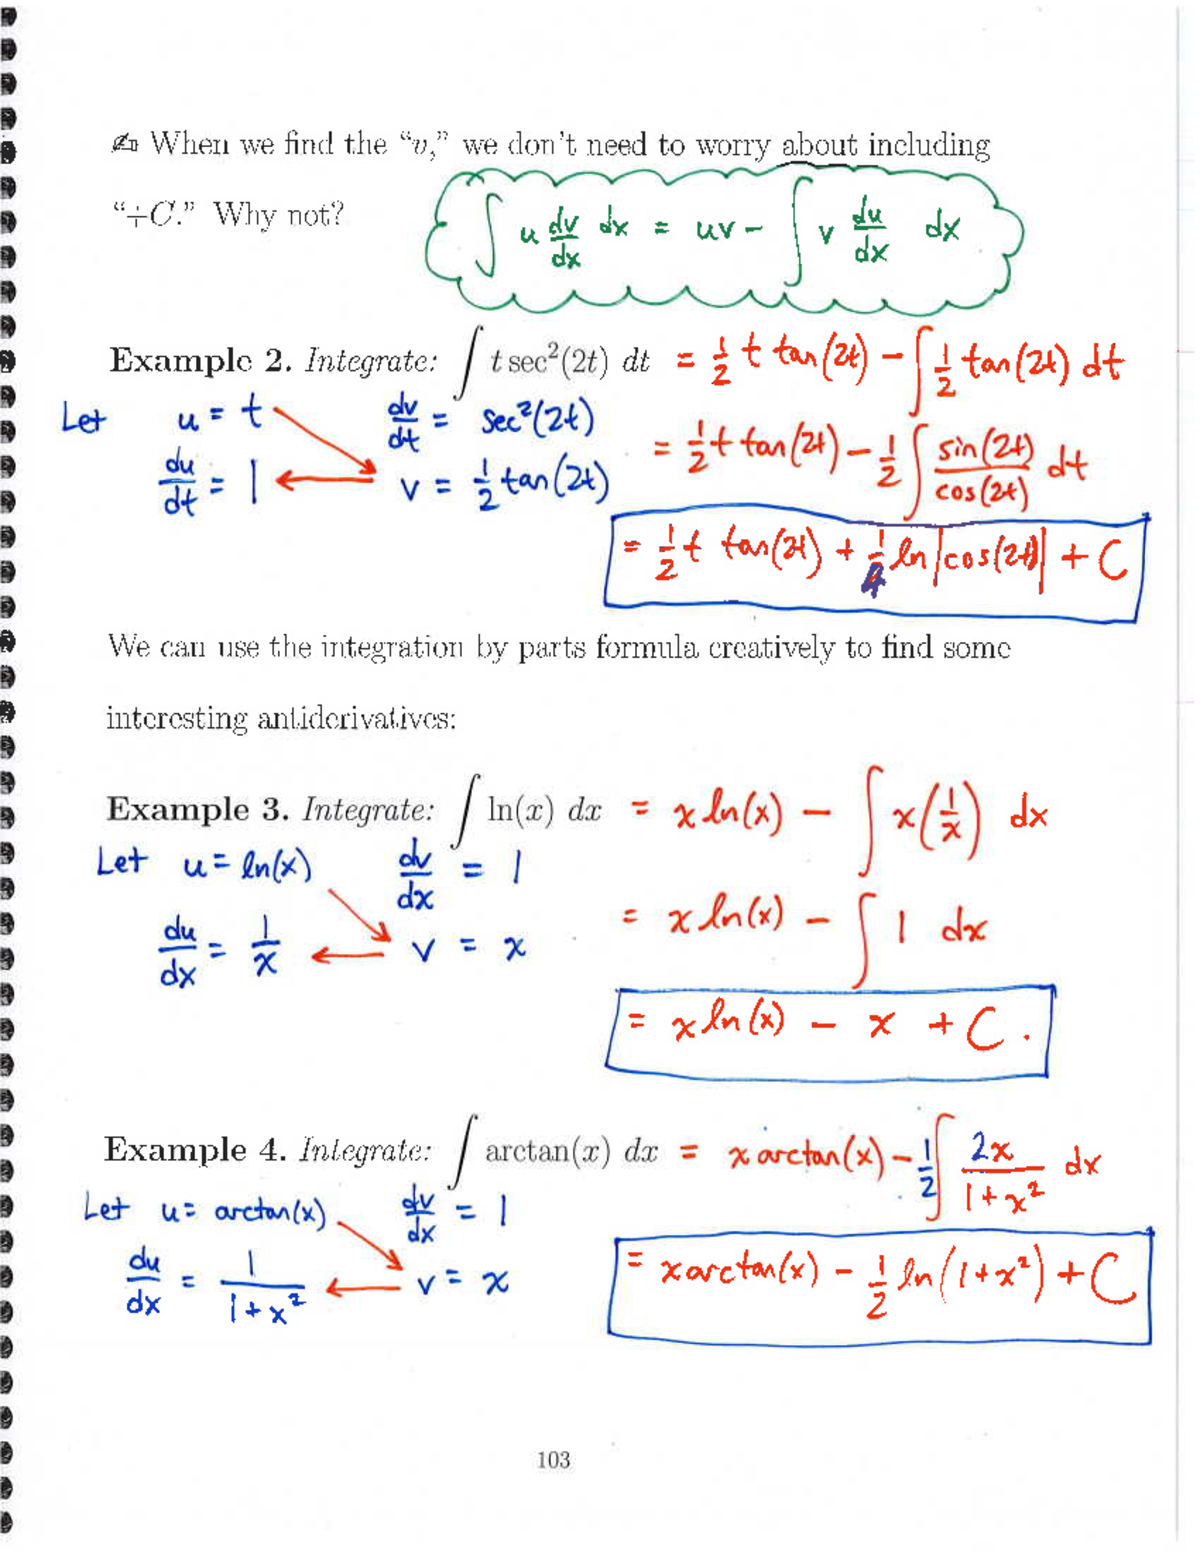 ✍ When we find the “v,” we don’t need to worry about including
“+C.” Why not?
∫ u dv/dx dx = uv - ∫ v du/dx dx
Example 2. Integrate: ∫ t sec²(2t) dt = 1/2 t tan(2t) - ∫ 1/2 tan(2t) dt
Let u = t dv/dt = sec²(2t)
= 1/2 t tan(2t) - 1/2 ∫ sin(2t)/cos(2t) dt
du/dt = 1 v = 1/2 tan(2t)
= 1/2 t tan(2t) + 1/4 ln|cos(2t)| + C
We can use the integration by parts formula creatively to find some
interesting antiderivatives:
Example 3. Integrate: ∫ ln(x) dx = x ln(x) - ∫ x(1/x) dx
Let u = ln(x) dv/dx = 1
= x ln(x) - ∫ 1 dx
du/dx = 1/x v = x
= x ln(x) - x + C.
Example 4. Integrate: ∫ arctan(x) dx = x arctan(x) - 1/2 ∫ 2x/(1+x²) dx
Let u = arctan(x) dv/dx = 1
du/dx = 1/(1+x²) v = x
= x arctan(x) - 1/2 ln(1+x²) + C
103